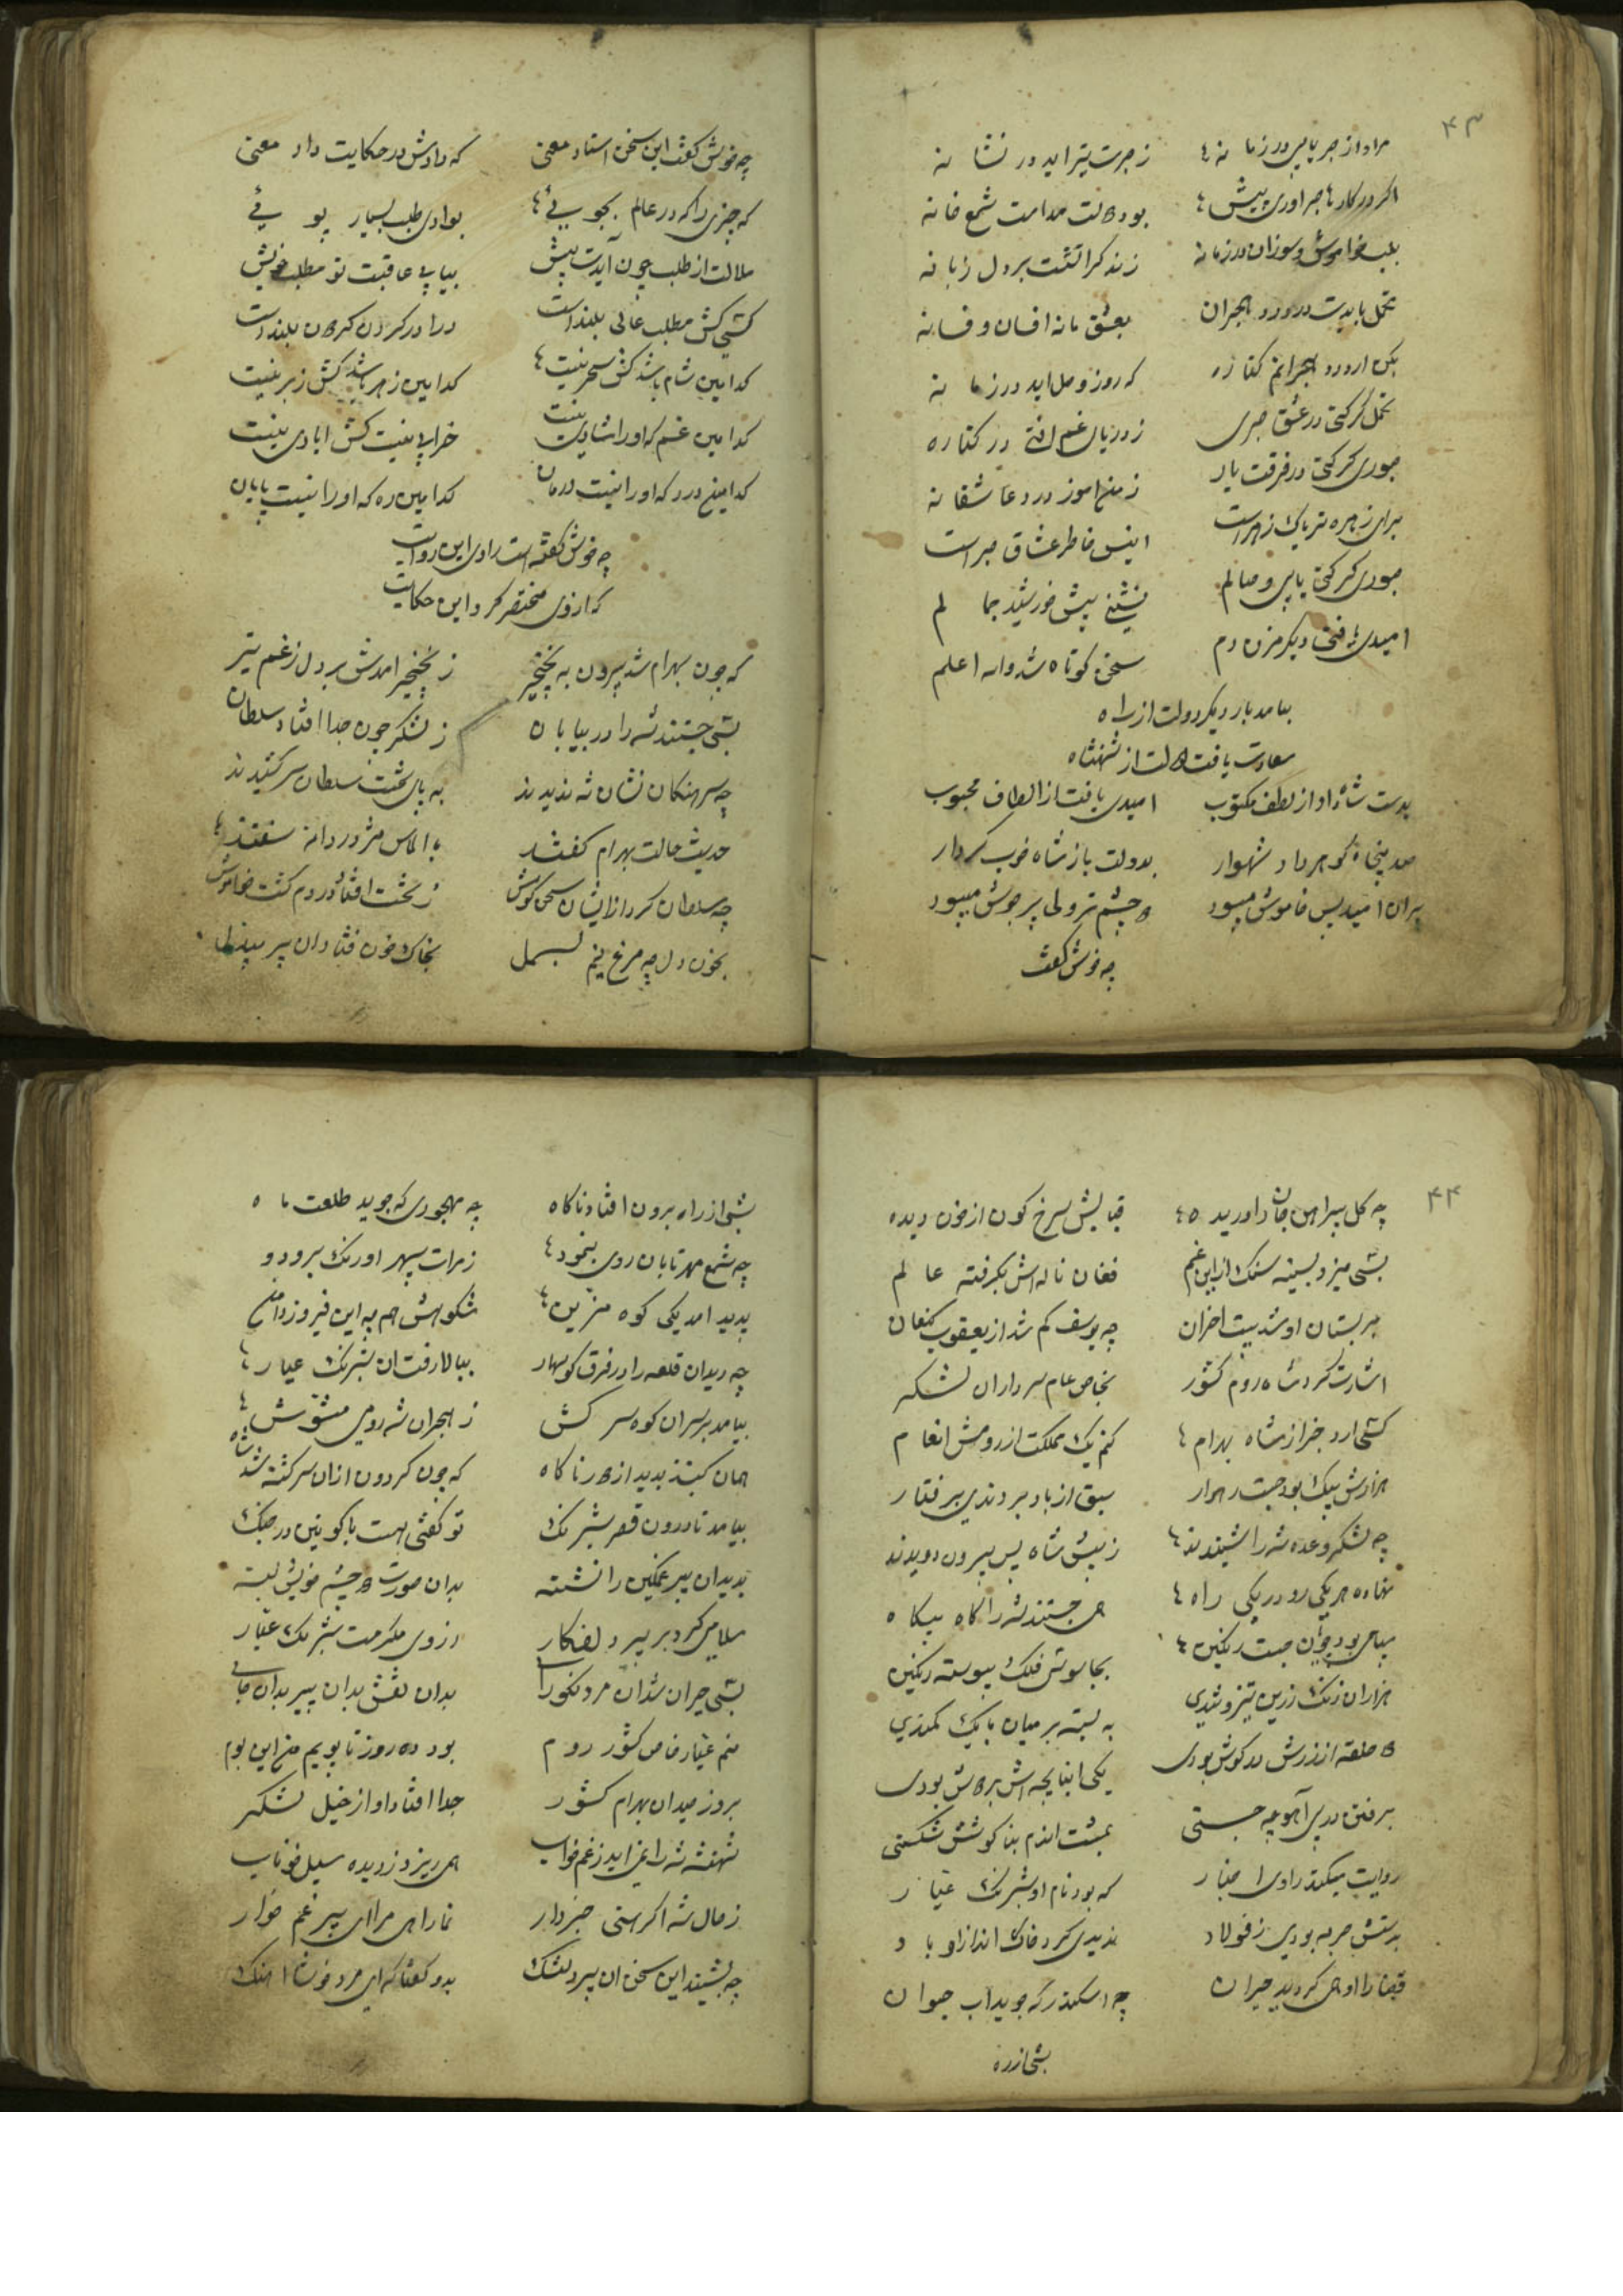 ۴۳
مراد از صبر یابی در زمانه زجرت تیر آید در نشانه
اگر در کارها صبر آوری پیش بود مدامت شمع خانه
بلب خاموش و سوزان در زمانه زند گر آتشت بر دل زبانه
تحمل بایدت در درد هجران بعشق ما نه افسان و فسانه
بکن از درد هجرانم کناره که روز وصل آید در زمانه
تحمل گر کنی در عشق صبری ز دریای غم افتی در کناره
صبوری گر کنی در فرقت یار ز من آموز درد عاشقانه
برای زهره تریاک زهر است انیس خاطر عشاق صبر است
صبوری گر کنی یابی وصالم نشینی پیش خورشید جمالم
امیدی یافتی دیگر مزن دم سخن کوتاه شد والله اعلم
بیامد بار دیگر دولت از راه
سعادت یافت از شهنشاه
بدست شاه داد از لطف مکتوب امیدی یافت از الطاف محبوب
صد پنجاه گوهر داد شهوار بدولت باز شاه خوب کردار
بران امید پس خاموش میبود چشم تر ولی پر جوش میبود
چه خوش گفت
چه خوش گفت این سخن استاد معنی که دادش در حکایت داد معنی
که چیزی را که در عالم بجویی بوادی طلب بسیار پویی
ملالت از طلب چون آیدت پیش بیابی عاقبت تو مطلب خویش
کسی کش مطلب عالی بلند است ورا در گردن گردون بلند است
کدامین شام باشد کش سحر نیست کدامین زهر باشد کش زبر نیست
کدامین غم که او را شادیی نیست خرابی نیست کش آبادی نیست
کدامین درد که او را نیست درمان کدامین ره که او را نیست پایان
چه خوش گفته است راوی این روایت
که از وی مختصر کرد این حکایت
که چون بهرام شد بیرون به نخچیر ز نخچیر آمدش بر دل ز غم تیر
بسی جستند شه را در بیابان ز لشکر چون جدا افتاد سلطان
چه سرهنگان نشان شه ندیدند به پای تخت سلطان سر کشیدند
حدیث حالت بهرام گفتند با الماس مژه دردانه سفتند
چه سلطان کرد از ایشان سخن گوش ز تخت افتاد و در دم گشت خاموش
بخون دل چه مرغ نیم بسمل بخاک خون فتاد آن پیر بیدل
۴۴
چه گل پیراهن جان را دریده قبایش سرخ گون از خون دیده
بسی میزد بسینه سنگ از این غم فغان ناله‌اش بگرفته عالم
سربستان او شد بیت احزان چه یوسف گم شد از یعقوب کنعان
اشارت کرد شاه روم کشور بخاص عام سرداران لشکر
کسی آرد خبر از شاه بهرام کنم یک مملکت از رومش انعام
هزارش پیک بود چست رهوار سبق از باد بردندی برفتار
چه لشکر وعده شه را شنیدند ز پیش شاه پس بیرون دویدند
نهاده هر یکی رو در یکی راه همی جستند شه را گاه بیگاه
سپاهی بود چون چست رنگین بجاسوسی فلک پیوسته رنگین
هزاران زنگ زرین تیز و تندی به بسته بر میان با یک کمندی
حلقه از زرش در گوش بودی یکی انبانچه‌اش بر دوش بودی
برفتن در پی آهو چه جستی بمشت اندم بناگوشش شکستی
روایت میکند راوی اخبار که بود نام او شبرنگ عیار
بدستش حربه بودی ز فولاد ندیدی گرد خاک انداز او باد
قضا را او همی گردید حیران چه اسکندر که جوید آب حیوان
شبی از ره
شبی از راه برون افتاد ناگاه چه مهجوری که جوید طلعت ماه
چه شمع مهر تابان روی بنمود ز مرآت سپهر اورنگ بربود
پدید آمد یکی کوه مزین شکوهش هم چه این فیروز دامن
چه دید آن قلعه را در فرق کوهسار ببالا رفت آن شبرنگ عیار
بیامد بر سر آن کوه سرکش ز هجران شه رومی مشوش
همان گنبذ بدید از دور ناگاه که چون گردون از آن سرگشته شد شاه
بیامد تا درون قصر شبرنگ تو گفتی هست با کونین در جنگ
بدید آن پیر غمگین را نشسته بدان صورت چشم خویش بسته
سلامی کرد بر پیر دلفکار ز روی مکرمت شبرنگ عیار
بسی حیران شد آن مرد نکو را بدان نقش بدان پیر بدان جای
منم عیار خاص کشور روم بود ده روز تا پویم من این بوم
بروز میدان بهرام کشور جدا افتاد او از خیل لشکر
شهنشه شه را می آید ز غم خواب همی ریزد ز دیده سیل خوناب
ز حال شه اگر هستی خبردار نما راهی مرا ای پیر غم خوار
چه بشنید این سخن آن پیر دلتنگ بدو گفتا که ای مرد خوش آهنگ